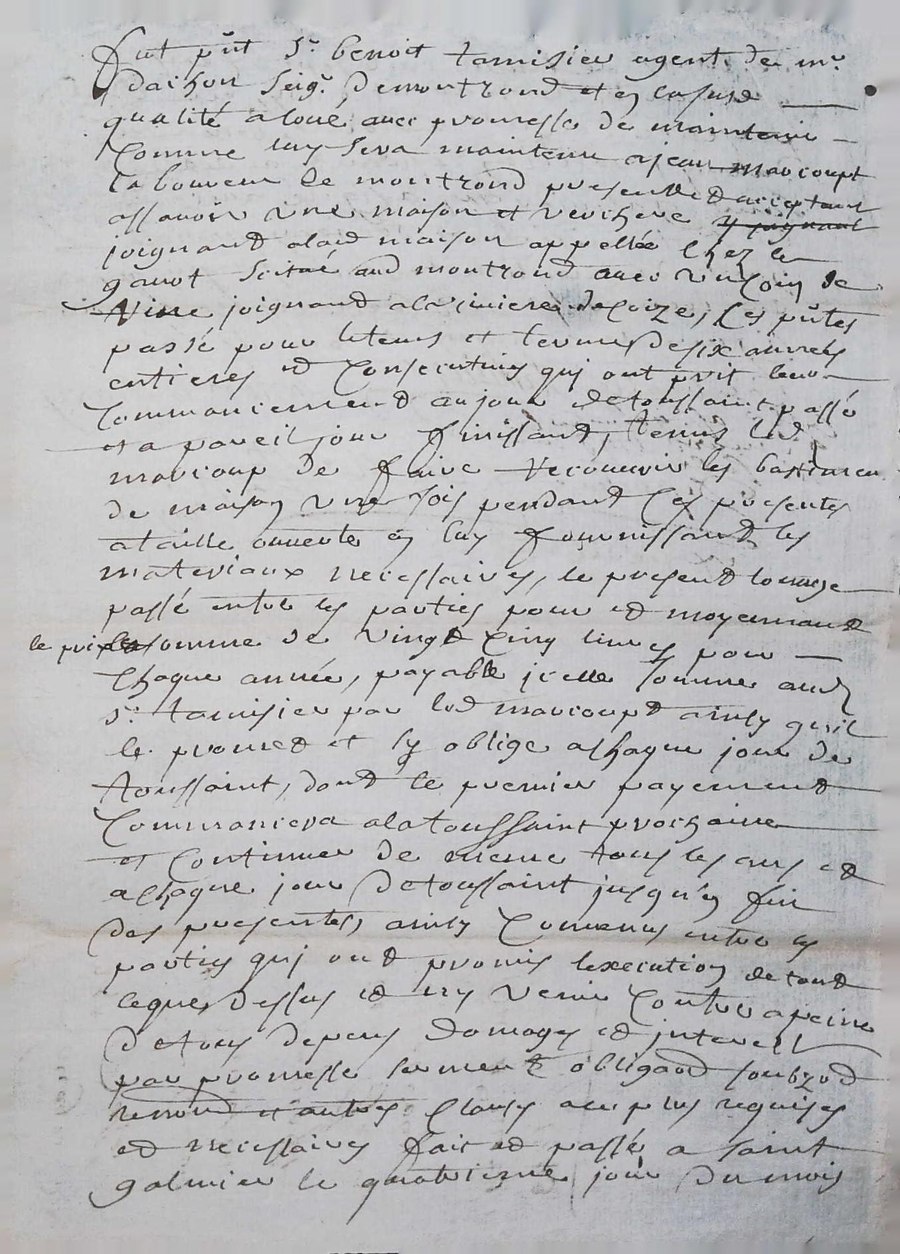 fut pñt Sr. benoit tamisier agent de mr.
dachon Seigr. Demontrond et en lasusd
qualité aloué avec promesse de maintenir
Comme luy sera maintenu a jean maucoupt
laboureur de montrond present et acceptant
assavoir une maison et verchere y joignant
joignand alad maison appellée Chez le
garot scitué aud montrond avec un Coin de
Vine joignand ala riviere de Coize, Ces pñtes
passé pour letems et terme de six années
entieres et Consecutives qui ont prit leur
Commancement aujour detoussaint passé
et a pareil jour finissant, tenus led
maucoup de faire recouvrir les bastimen
de maison une fois pendant Ces presentes
ataille ouverte en luy fournissand les
materiaux necessaires, le present louage
passé entre les parties pour et moyennant
le prix et somme de vingt Cinq livres pour
Chaque année, payable jcelle somme aud
Sr. tamisier par led maucoupt ainsy quil
le promet et sy oblige achaque jour de
toussaint, dont le premier payement
Commancera alatoussaint prochaine
et Continuer de meme tous les ans et
achaque jour detoussaint jusqu'en fin
des presentes, ainsy Convenus entre les
parties qui ont promis lexecution detout
ceque dessus et ny venir Contre apeine
detous depens domages et jnterest
par promesse serment obligaon soubzon
renonon et autres Clauses au plus requises
et necessaires fait et passé a saint
galmier le quatrieme jour du mois